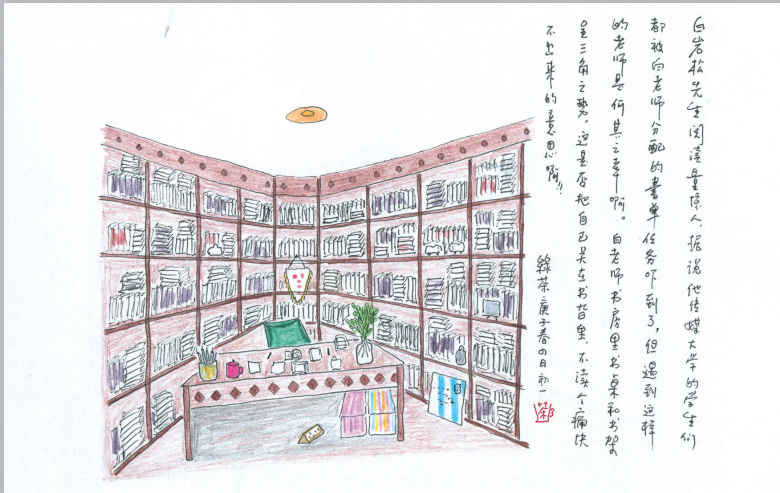 白岩松先生阅读量惊人，据说他传媒大学的学生们
都被白老师分配的书单任务吓到了，但遇到这样
的老师是何其之幸啊。白老师书房里书桌和书架
呈三角之势，这是否把自己关在书皆里不读个痛快
不出来的意思啊！！
绿茶庚子春四日初一